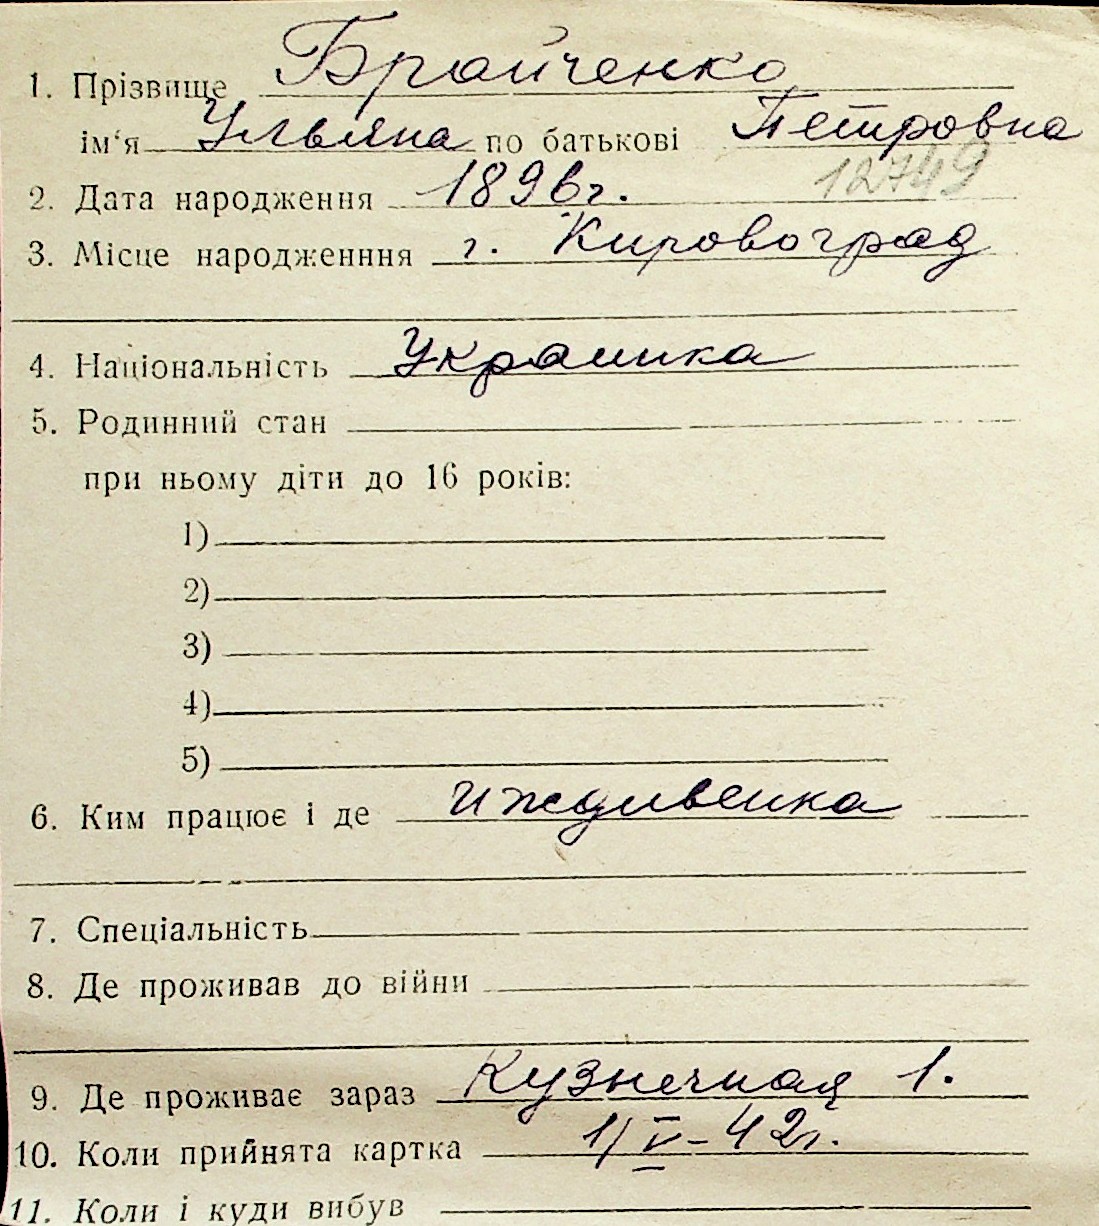 1. Прізвище Брайченко
ім‘я Ульяна по батькові Петровна
12749
2. Дата народження 1896г.
3. Місце народженння г. Кировоград
4. Національність Украинка
5. Родинний стан
при ньому діти до 16 років:
1)
2)
3)
4)
5)
6. Ким працює і де иждивенка
7. Спеціальність
8. Де проживав до війни
9. Де проживає зараз Кузнечная 1.
10. Коли прийнята картка 1/V-42г.
11. Коли і куди вибув